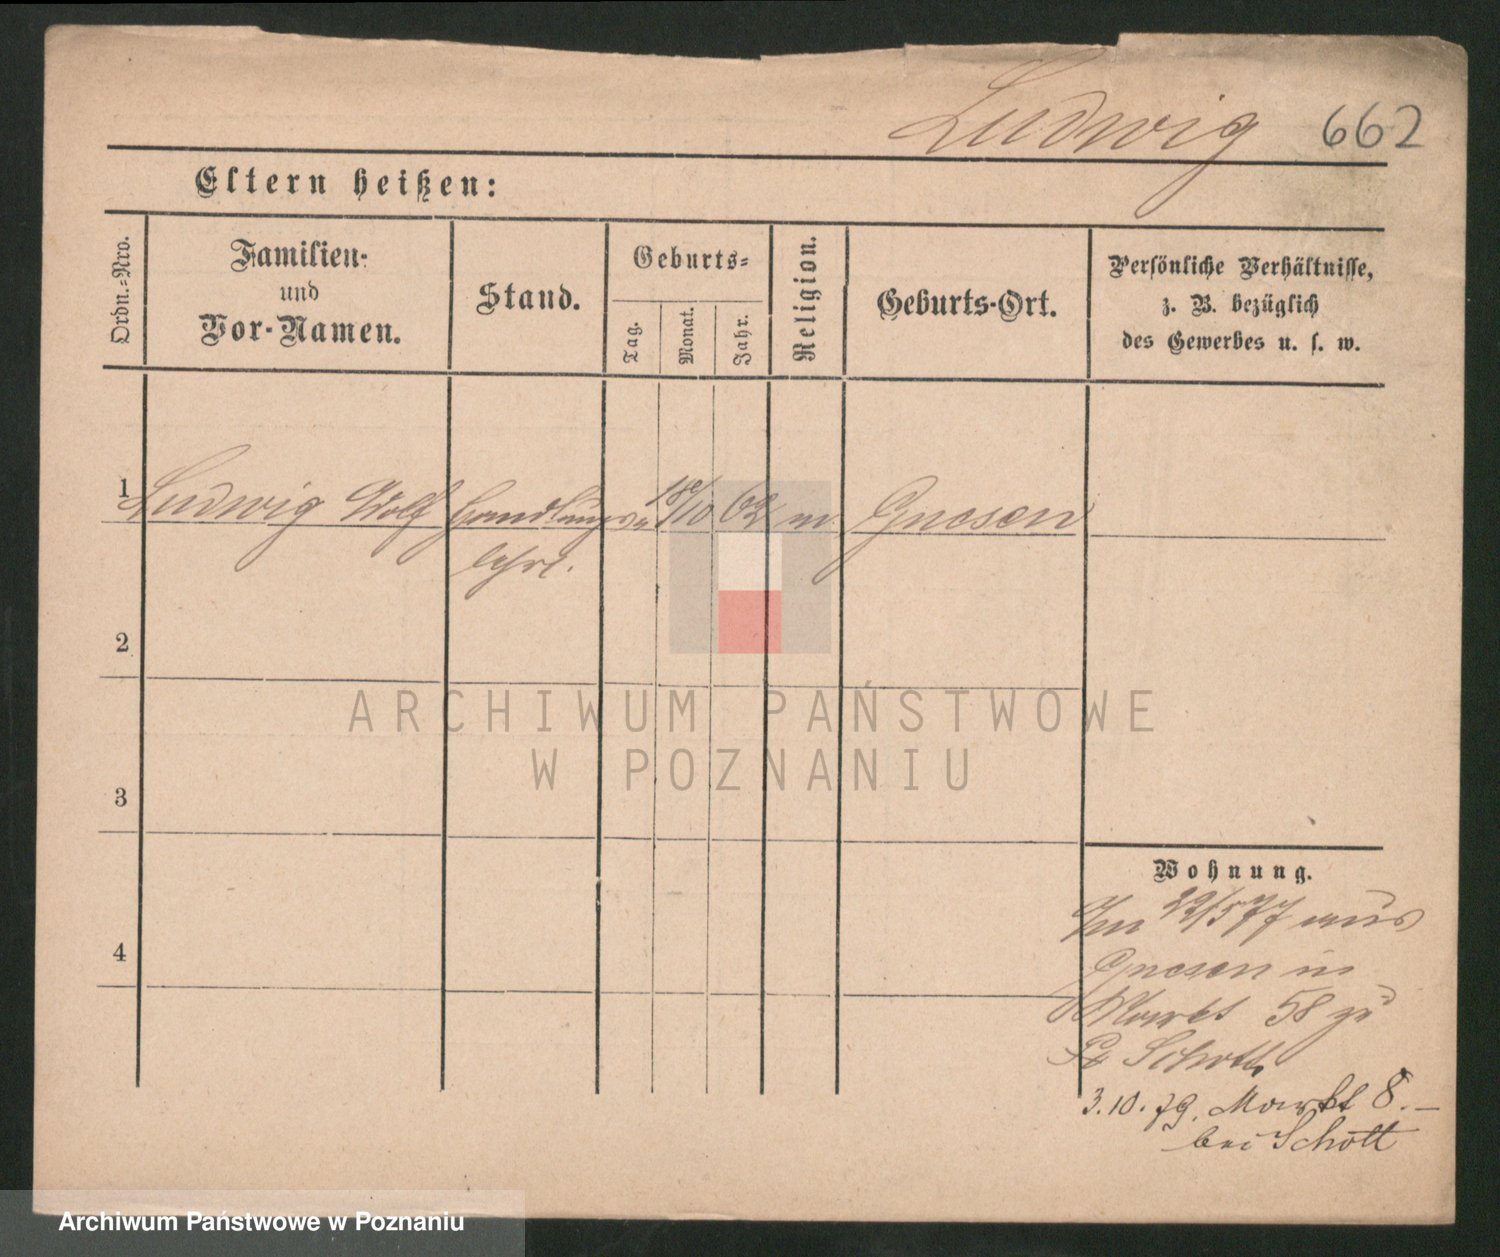 Ludwig 662
Eltern heißen:
Ordn.-Nro.
Familien-
und
Vor-Namen.
Stand.
Geburts-
Tag.
Monat.
Jahr.
Religion.
Geburts-Ort.
Persönliche Verhältnisse,
z. B. bezüglich
des Gewerbes u. s. w.
1 Ludwig Wolf Handlungs 18/10 62 m. Gnesen
lehrl.
2
3
4
ARCHIWUM PAŃSTWOWE
W POZNANIU
Wohnung.
22/5 77 aus
Gnesen in
Markt 58 zu
Schott
3.10.79. Markt 8.
bei Schott
Archiwum Państwowe w Poznaniu